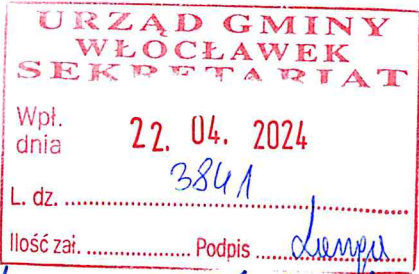 URZĄD GMINY
WŁOCŁAWEK
SEKRETARIAT
Wpł. dnia 22. 04. 2024
3841
L. dz. ........................
Ilość zał. .................. Podpis ........